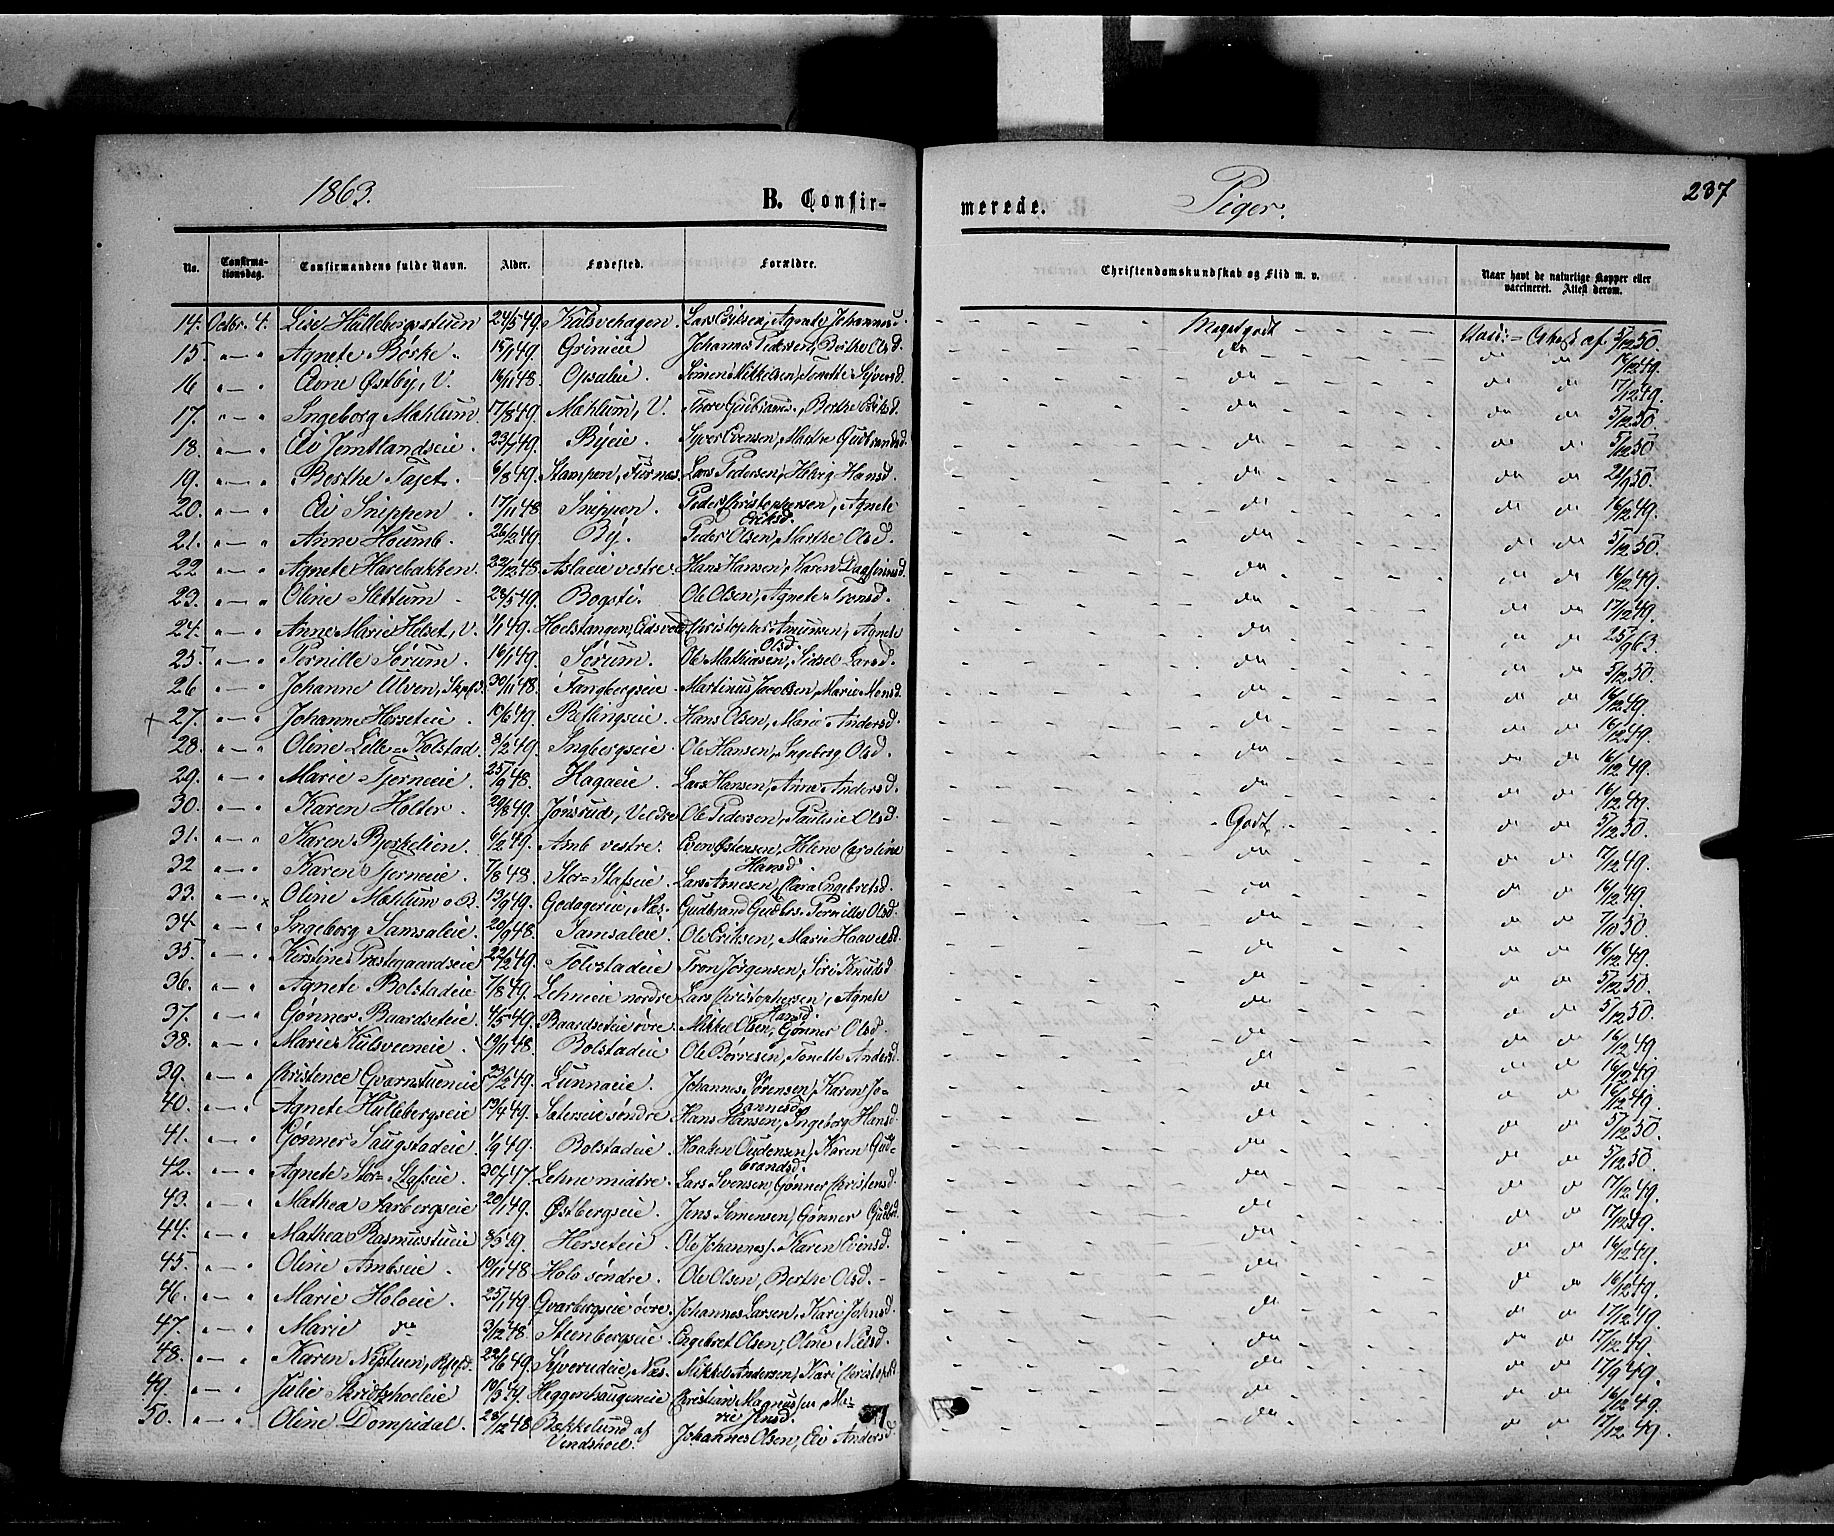 1863.
B. Confirmerede.
Piger.
237
No. Confirmationsdag. Confirmandens fulde Navn. Alder. Fødested. Forældre. Christendomskundskab og Flid m. v. Naar havt de naturlige Kopper eller vaccineret. Attest derom.
14. Octbr. 4. Lise Hullebergstuen 24/5 49. Kulsvehagen. Lars Eriksen, Agnete Johannesd. Meget godt Attest af 5/12 50.
15 " Agnete Børke. 15/1 49. Grinieie Johannes Pedersen, Berthe Olsd. do do do 17/12 49.
16 " Østby, V. 16/11 48. Opsaleie. Simen Mikkelsen, Tonette Syversd. do do do 17/12 49.
17. " Ingeborg Mæhlum 17/8 49. Mæhlum, V. Thore Gudbrands., Berthe Eriksd. do do do 5/12 50.
18. " Jemtlandseie. 23/7 49. Byeie. Syver Evensen, Marthe Gudbrandsd. do do do 5/12 50.
19. " Berthe Tajet. 6/8 49. Stampen, Furnæs. Lars Pedersen, Hans d. do do do
20. " Snippen. 17/11 48. Snippen. Peder Christophersen, Agnete Eriksd. do do do 16/12 49.
21. " Anne Houmb. 26/2 49. By. Peder Olsen, Marthe Olsd. do do do 5/12 50.
22 " Agnete Harebakken 22/12 48. vestre. Hans Hansen, Karen Dagfinnsd. do do do 16/12 49.
23. " Oline Slettum. 28/5 49. Bogsti. Ole Olsen, Agnete Tronsd. do do do 17/12 49.
24. " Anne Marie Helset, V. 1/1 49. Hoelstangen, Eidsvold Christopher Amunsen, Agnete Olsd. do do do 25/9 63.
25 " Pernille Sørum. 16/1 49. Sørum. Ole Mathiasen, Sidsel Larsd. do do do 5/12 50.
26 " Johanne Ulven, 30/11 48. Fangbergseie. Martinus Jacobsen, Marie Monsd. do do do 16/12 49.
27. " Johanne Herseteie. 10/6 49. Reflingseie. Hans Olsen, Marie Andersd. do do do 16/12 49.
28. " Oline Lille-Kolstad. 8/2 49. Ingbergseie. Ole Hansen, Ingeborg Olsd. do do do 16/12 49.
29. " Marie Tjerneeie. 25/9 48. Hagaeie. Lars Hansen, Anne Andersd. do do do 16/12 49.
30. " Karen Holter. 20/8 49. Jønsrud, Veldre Ole Pedersen, Pauline Olsd. Godt. do do 5/12 50.
31. " Karen Bjerkelien. 6/2 49. Amb vestre. Even Østensen, Helene Caroline Hansd. do do do 17/12 49.
32 " Karen Tjerneeie. 7/8 48. Stor-Stafseie. Lars Arnesen, Clara Engebretsd. do do do 16/12 49.
33. " Oline Mæhlum 13/9 49. Godagereie, Næs. Gudbrand Gudbrs. Pernille Olsd. do do do 7/10 50.
34. " Ingeborg Samsaleie. 20/9 48. Samsaleie. Ole Eriksen, Marie Haavelsd. do do do 16/12 49.
35. " Kirstine Prestegaardseie 22/2 49. Tolvstadeie Tron Jörgensen, Siri Knudsd do do do 5/12 50.
36. " Agnete Bolstadeie 7/8 49. Lehneeie nordre Lars Christophersen, Agnete Hansd. do do do 5/12 50.
37. " Gønner Baardseteie. 4/5 49. Baardseteie øvre. Mikkel Olsen, Gønner Olsd. do do do 16/12 49.
38. " Marie Kulsveeneie. 19/11 48. Bolstadeie Ole Børresen, Tonette Andersd. do do do 16/12 49.
39. " Christence Qvarnstueneie 23/2 49. Lunnaeie. Johannes Sörensen, Karen Johannesd. do do do 16/12 49.
40. " Agnete Hullebergseie 13/4 49. Sætereie søndre. Hans Hansen, Ingeborg Hansd. do do do 5/12 50.
41. " Gønner Saugstadeie. 1/9 49. Bolstadeie. Haaken Audensen, Karen Gudbrandsd. do do do 5/12 50.
42. " Agnete Stor-Stafseie. 30/7 47. Lehne midtre. Lars Svensen, Gønner Christensd. do do do 17/12 49.
43. " Mathea Aarbergseie. 20/1 49. Østbergseie. Jens Simensen, Gønner Gudbrd. do do do 17/12 49.
44. " Mathea Rasmusstueeie 8/5 49. Herseteie. Ole Johanness. Karen Evensd. do do do 16/12 49.
45. " Oline Ambseie. 19/11 48. Holo søndre. Ole Olsen, Berthe Olsd. do do do 16/12 49.
46. " Marie Holoeie. 25/1 49. Qvarbergseie øvre. Johannes Larsen, Kari Johnsd. do do do 17/12 49.
47. " Marie do 3/12 48. Steenbergseie. Engebret Olsen, Oline Nilsd. do do do 17/12 49.
48. " Karen 22/6 49. Syverudeie, Næs. Mikkel Andersen, Kari Christophd. do do do 17/9 49.
49. " Julie Skridshoeleie. 10/3 49. Heggenhaugeneie Christian Magnussen, Marie Jensd. do do do 16/12 49.
50. " Oline Dompidal. 28/12 48. Bækkelund af Vendshoel. Johannes Olsen, Andersd. do do do 17/12 49.